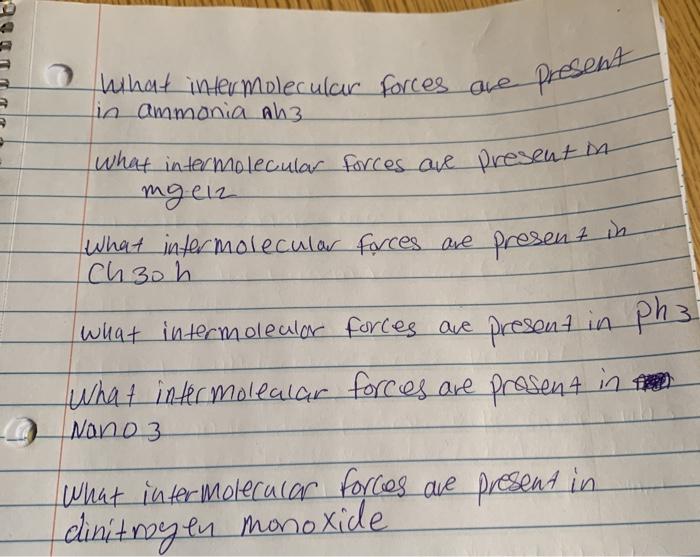 What intermolecular forces are present
in ammonia nh3
what intermolecular forces are present in
mgcl2
what intermolecular forces are present in
Ch3oh
what intermoleular forces are present in ph3
What intermolealar forces are present in
Nano3
What intermolecular forces are present in
dinitrogen monoxide